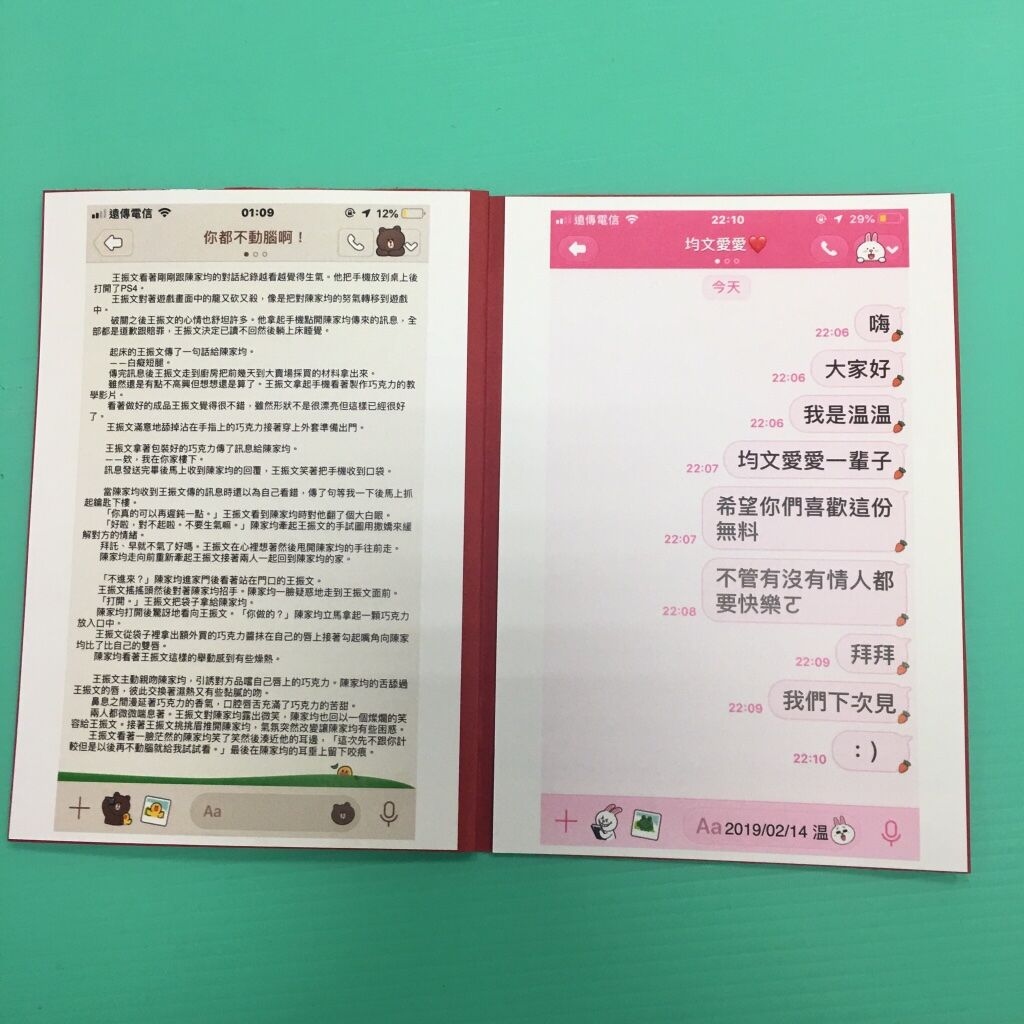 遠傳電信 01:09 12%
你都不動腦啊！
王振文看著剛剛跟陳家均的對話紀錄越看越覺得生氣。他把手機放到桌上後
打開了PS4。
王振文對著遊戲畫面中的龍又砍又殺，像是把對陳家均的努氣轉移到遊戲
中。
破關之後王振文的心情也舒坦許多。他拿起手機點開陳家均傳來的訊息，全
部都是道歉跟賠罪，王振文決定已讀不回然後躺上床睡覺。
起床的王振文傳了一句話給陳家均。
——白癡短腿。
傳完訊息後王振文走到廚房把前幾天到大賣場採買的材料拿出來。
雖然還是有點不高興但想想還是算了。王振文拿起手機看著製作巧克力的教
學影片。
看著做好的成品王振文覺得很不錯，雖然形狀不是很漂亮但這樣已經很好
了。
王振文滿意地舔掉沾在手指上的巧克力接著穿上外套準備出門。
王振文拿著包裝好的巧克力傳了訊息給陳家均。
——欸，我在你家樓下。
訊息發送完畢後馬上收到陳家均的回覆，王振文笑著把手機收到口袋。
當陳家均收到王振文傳的訊息時還以為自己看錯，傳了句等我一下後馬上抓
起鑰匙下樓。
「你真的可以再遲鈍一點。」王振文看到陳家均時對他翻了個大白眼。
「好啦，對不起啦。不要生氣嘛。」陳家均牽起王振文的手試圖用撒嬌來緩
解對方的情緒。
拜託、早就不氣了好嗎。王振文在心裡想著然後甩開陳家均的手往前走。
陳家均走向前重新牽起王振文接著兩人一起回到陳家均的家。
「不進來？」陳家均進家門後看著站在門口的王振文。
王振文搖搖頭然後對著陳家均招手。陳家均一臉疑惑地走到王振文面前。
「打開。」王振文把袋子拿給陳家均。
陳家均打開後驚訝地看向王振文。「你做的？」陳家均立馬拿起一顆巧克力
放入口中。
王振文從袋子裡拿出額外買的巧克力醬抹在自己的唇上接著勾起嘴角向陳家
均比了比自己的雙唇。
陳家均看著王振文這樣的舉動感到有些燥熱。
王振文主動親吻陳家均，引誘對方品嚐自己唇上的巧克力。陳家均的舌舔過
王振文的唇，彼此交換著濕熱又有些黏膩的吻。
鼻息之間漫延著巧克力的香氣，口腔唇舌充滿了巧克力的苦甜。
兩人都微微喘息著。王振文對陳家均露出微笑，陳家均也回以一個燦爛的笑
容給王振文。接著王振文挑挑眉推開陳家均，氣氛突然改變讓陳家均有些困惑。
王振文看著一臉茫然的陳家均笑了笑然後湊近他的耳邊，「這次先不跟你計
較但是以後再不動腦就給我試試看。」最後在陳家均的耳垂上留下咬痕。
Aa
遠傳電信 22:10 29%
均文愛愛❤️
今天
22:06 嗨
22:06 大家好
22:06 我是温温
22:07 均文愛愛一輩子
希望你們喜歡這份
22:07 無料
不管有沒有情人都
22:08 要快樂ㄛ
22:09 拜拜
22:09 我們下次見
22:10 ：)
Aa 2019/02/14 温